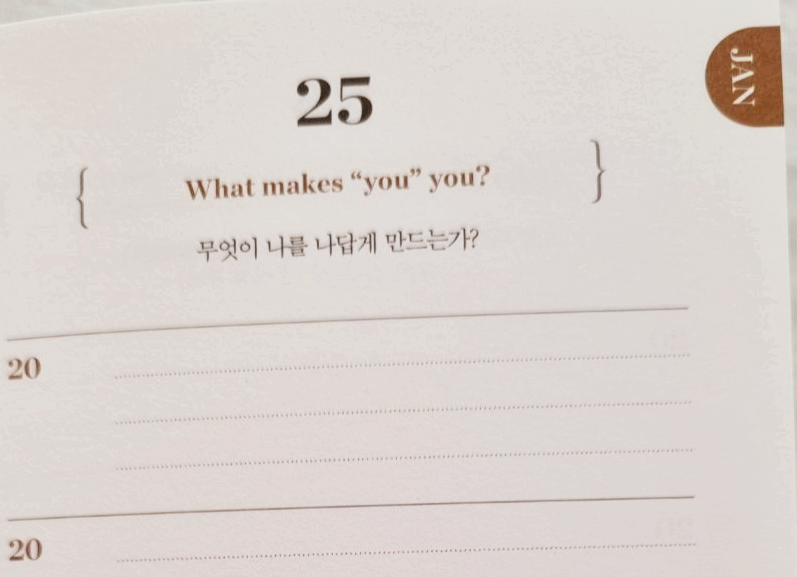 JAN
25
{ What makes “you” you? }
무엇이 나를 나답게 만드는가?
20
20